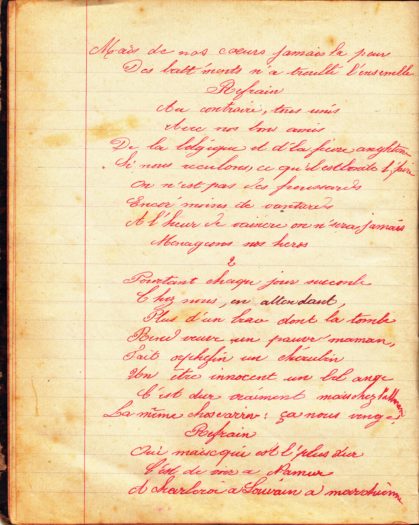 Mais de nos cœurs jamais la peur
Des batt'ments n'a troublé l'ensemble
Refrain
Au contraire, tous unis
Avec nos bons amis
De la belgique et d'la fière angleterre
Si nous reculons, ce qu'il est
On n'est pas des froussards
Encor' moins de vantards
A l'heur' de vaincre on n'sera jamais
Menageons nos heros
2
Pourtant chaque jour succomb
Chez nous, en attendant,
Plus d'un brav' dont la tombe
Rend veuve un pauvre maman,
Fait orphelin un chérubin
Un être innocent un bel ange
C'est dur vraiment mais chez
La même chos' arriv: ça nous venge
Refrain
Oui mais c'qui est l'plus dur
C'est de voir a Namur
A charleroi a Louvain a marchienne